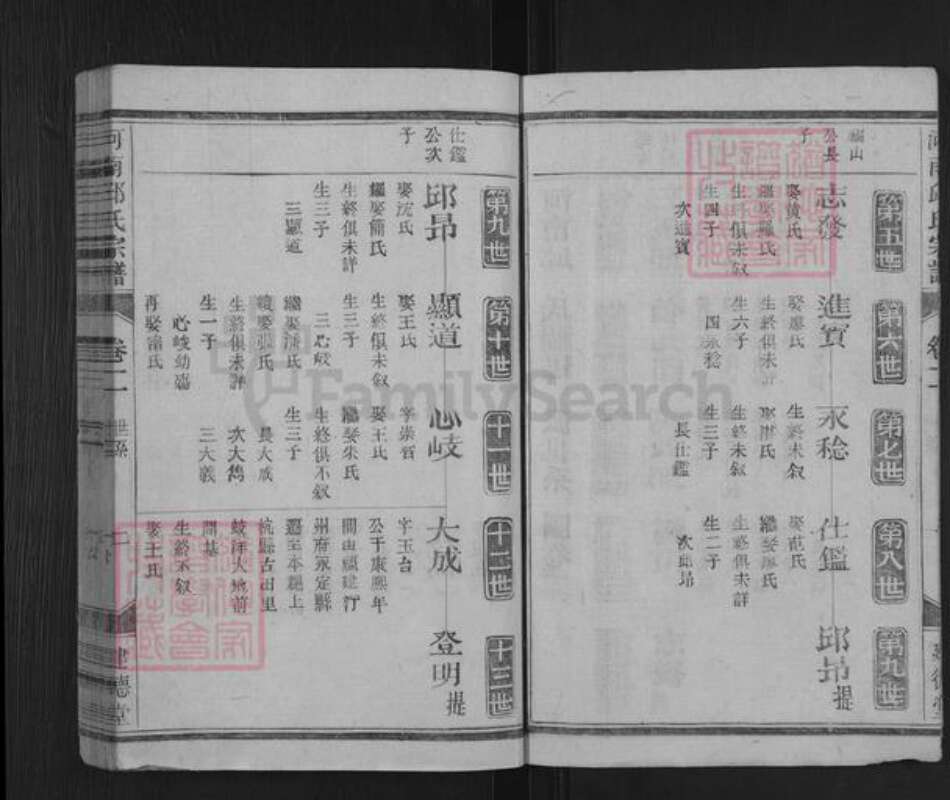 第五世
第六世
第七世
第八世
第九世
公長
子
志發
娶黃氏
繼娶羅氏
生四子
次進寶
進寶
娶廖氏
生終俱未詳
生六子
四永稔
永稔
生終未叙
生終未叙
生三子
長仕鑑
仕鑑
娶范氏
繼娶廖氏
生終俱未詳
生二子
次邱昂
邱昂
提
第九世
第十世
十一世
十二世
十三世
仕鑑
公次
子
邱昂
娶沈氏
繼娶簡氏
生終俱未詳
生三子
三顯道
顯道
娶王氏
生終俱未叙
生三子
三心岐
心岐
字崇省
娶王氏
繼娶朱氏
生終俱不叙
生三子
長大成
次大鵂
三大義
繼娶洪氏
續娶張氏
生終俱未詳
生一子
心峻幼殤
再娶雷氏
大成
字玉台
公于康熙年
間由福建汀
州府永定縣
遷至本邑上
杭縣古田里
開基
生終不叙
娶王氏
登明
提
河南邱氏宗譜
卷二
世系
二
建德堂
FamilySearch